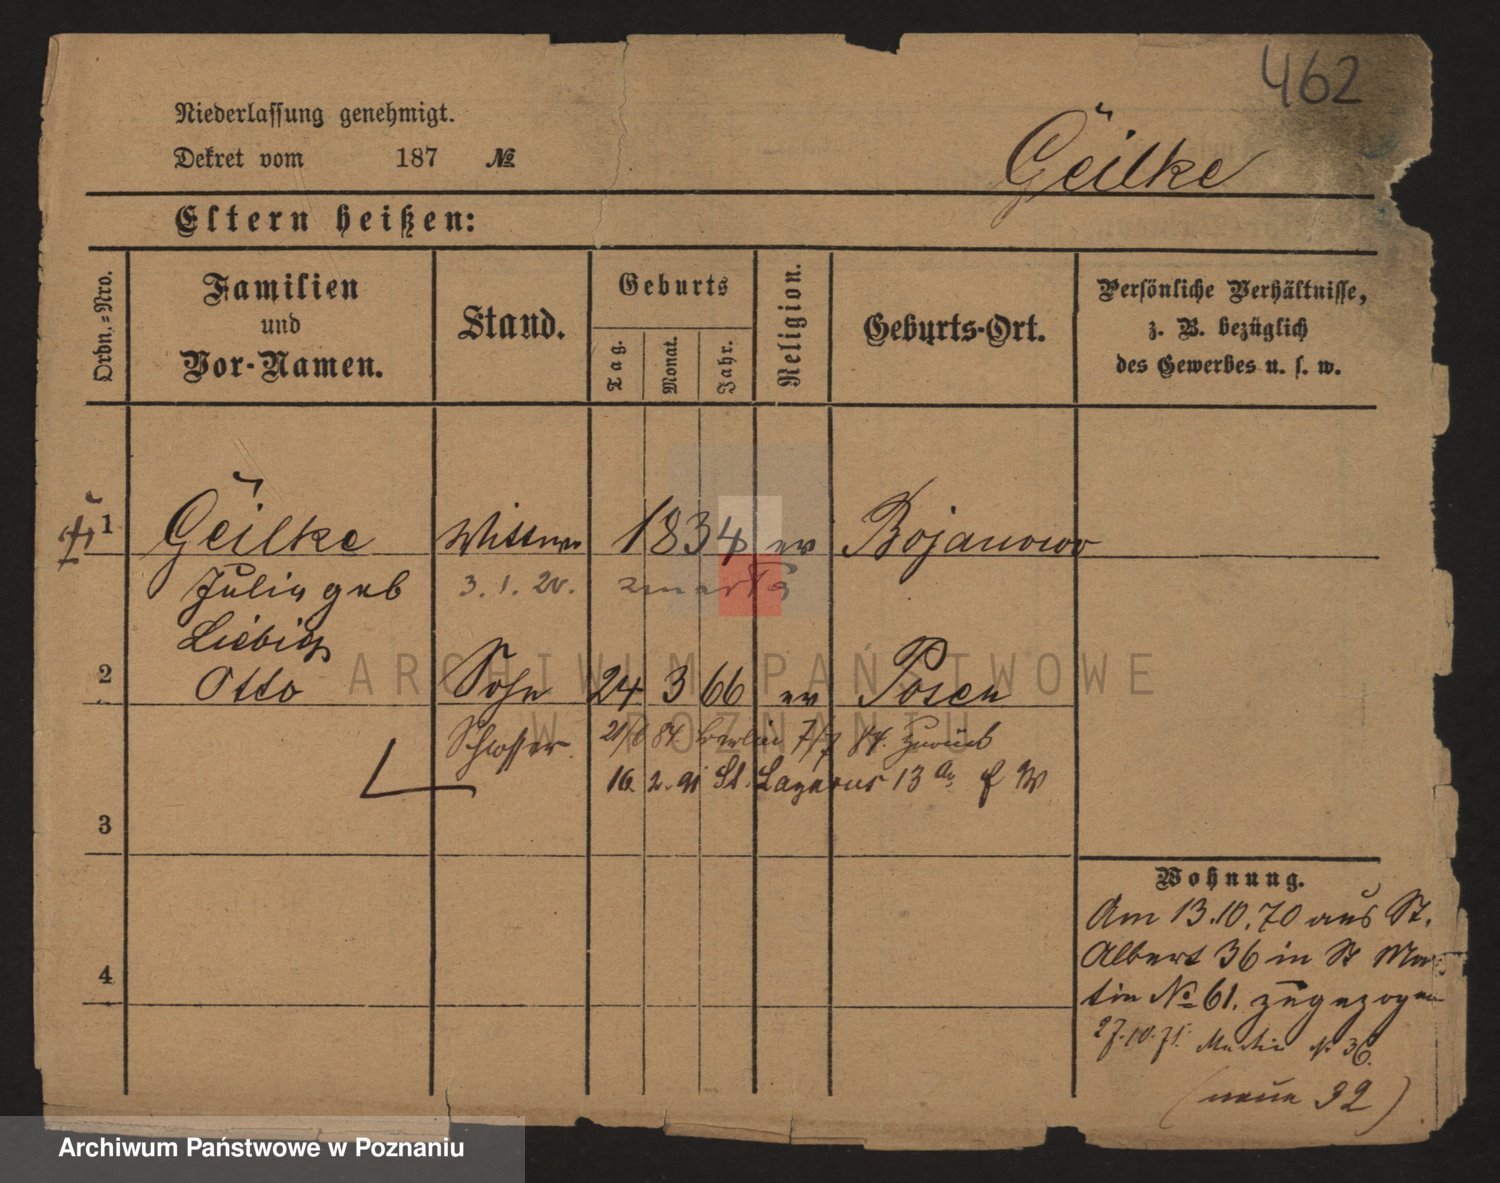 462
Niederlassung genehmigt.
Dekret vom 187 №
Geilke
Eltern heißen:
Ordn.-Nro.
Familien und Vor-Namen.
Stand.
Geburts
Tag.
Monat.
Jahr.
Religion.
Geburts-Ort.
Persönliche Verhältnisse,
z. B. bezüglich
des Gewerbes u. s. w.
1 Geilke Wittwe 1834 ev Bojanowo
Julie geb 3. 1. 20. zmarła
Liebig
2 Otto Sohn 24 3 66 ev Posen
Schlosser. 21/6 84 Berlin 7/7 84. zurück
16 2. 91 St. Lazarus 13
3
4
Wohnung.
Am 13.10.70 aus St.
Albert 36 in St Mar-
tin № 61. zugezogen
27.10.71. Martin № 36.
(neue 32)
ARCHIWUM PAŃSTWOWE
W POZNANIU
Archiwum Państwowe w Poznaniu